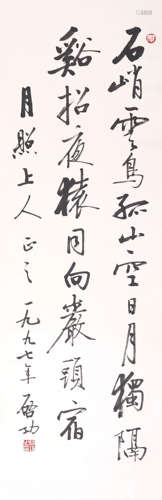 石峭雲鳥孤山空日月獨隔
谿招夜猿同向巖頭宿
月照上人正之一九九七年啟功